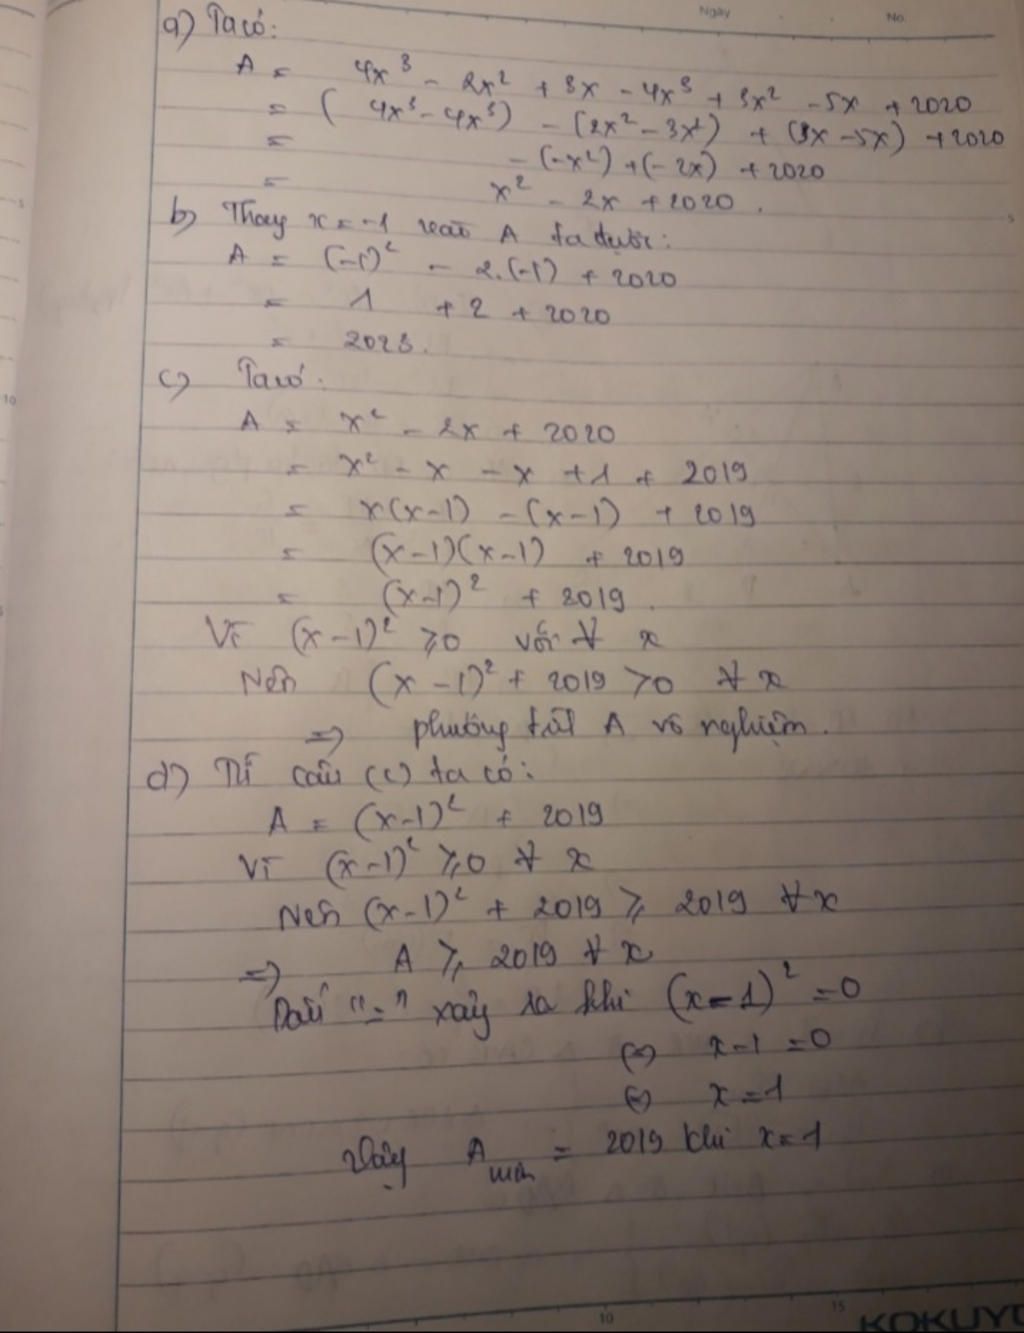 Ngày No.
a) Ta có:
A = 4x³ - 2x² + 3x - 4x³ + 3x² - 5x + 2020
= (4x³ - 4x³) - (2x² - 3x²) + (3x - 5x) + 2020
= -(-x²) + (-2x) + 2020
= x² - 2x + 2020.
b) Thay x = -1 vào A ta được:
A = (-1)² - 2.(-1) + 2020
= 1 + 2 + 2020
= 2023.
c) Ta có:
A = x² - 2x + 2020
= x² - x - x + 1 + 2019
= x(x-1) - (x-1) + 2019
= (x-1)(x-1) + 2019
= (x-1)² + 2019.
Vì (x-1)² ⩾ 0 với ∀ x
Nên (x-1)² + 2019 > 0 ∀ x
=> phương A vô nghiệm.
d) Từ câu (c) ta có:
A = (x-1)² + 2019
Vì (x-1)² ⩾ 0 ∀ x
Nên (x-1)² + 2019 ⩾ 2019 ∀ x
=> A ⩾ 2019 ∀ x
Dấu "=" xảy ra khi (x-1)² = 0
(=) x-1 = 0
(=) x = 1
Vậy A min = 2019 khi x = 1
10 15 KOKUYO